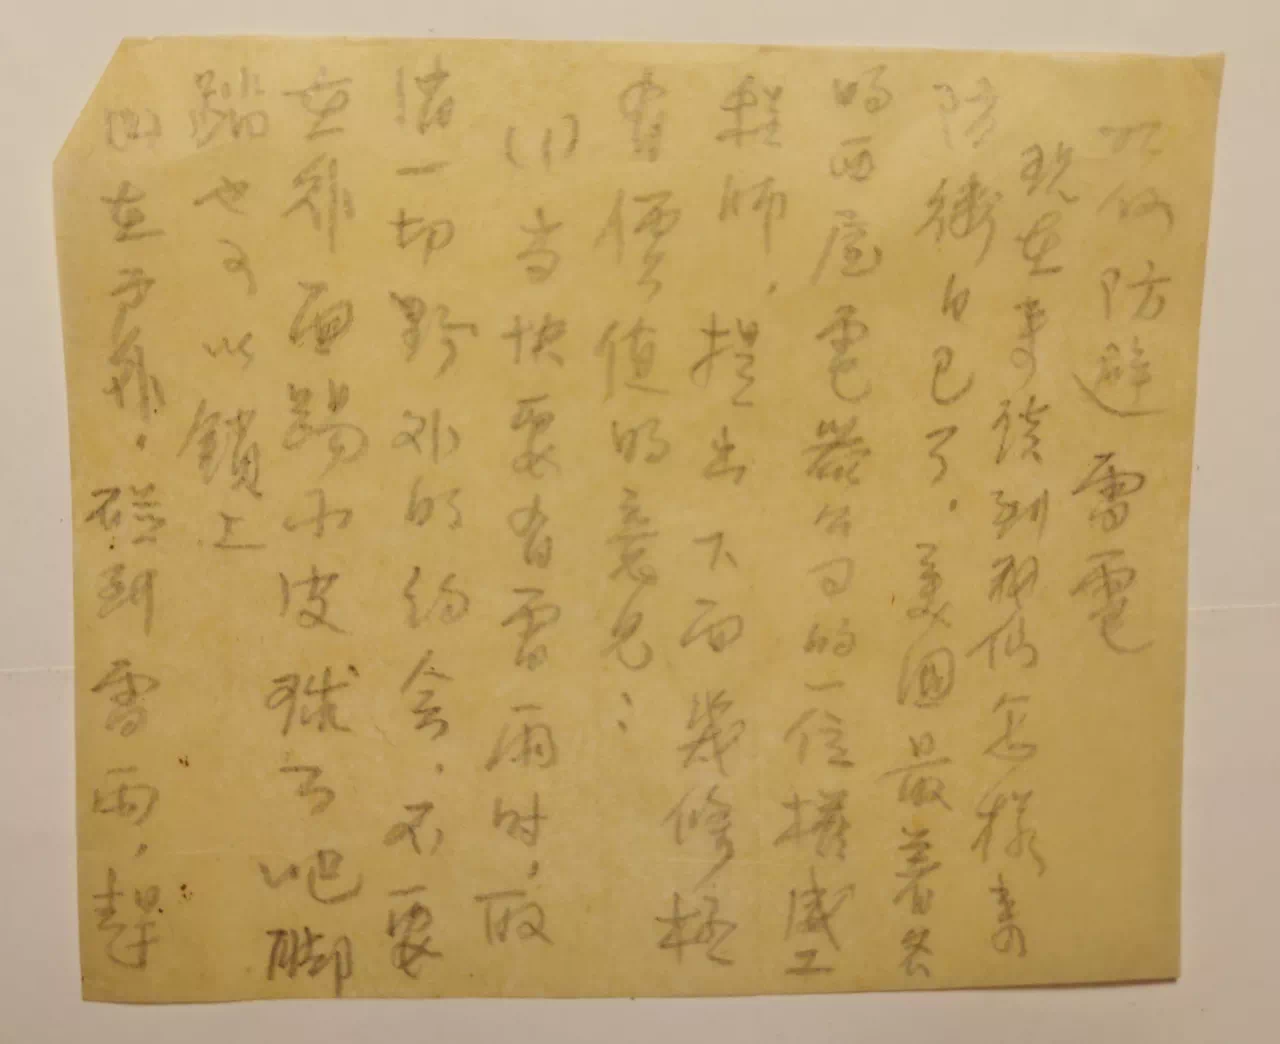 如何防避雷電
現在要談到我們怎樣來
防衛自己了．美國最著名
的西屋電器公司的一位權威工
程師，提出下面幾條極
有價值的意見：
(1)当快要有雷雨时，取
消一切野外的約会．不要
在外面踢小皮球了吧脚
踏也可以鎖上
(2)在予外．碰到雷雨，趕